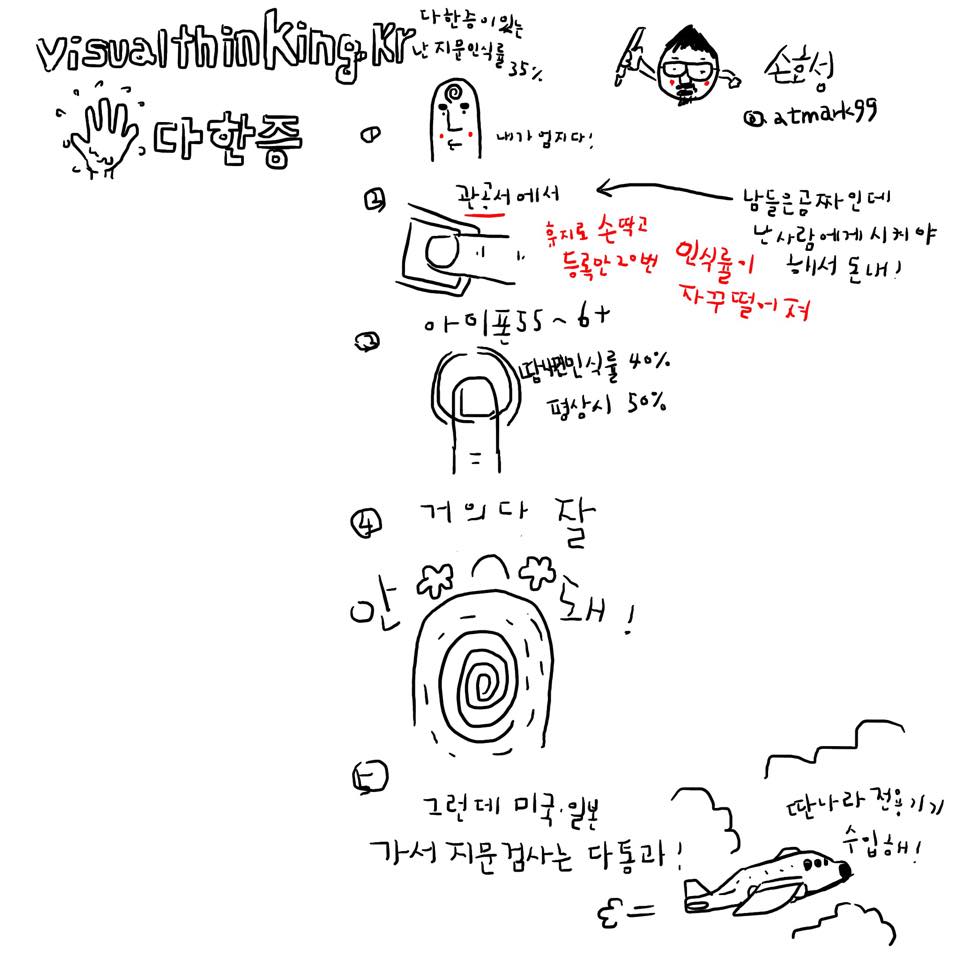 visualthinking.kr
다한증
다한증이 있는
난 지문인식률
35%
손호성
@atmark99
①
내가 엄지다!
②
관공서에서
휴지로 손딱고
등록만 20번
인식률이
자꾸떨어져
남들은 공짜인데
난 사람에게 시켜야
해서 돈내!
③
아이폰5S~6+
땀나면인식률 40%
평상시 50%
④
거의 다 잘
안 돼!
그런데 미국·일본
가서 지문검사는 다통과!
딴나라 전용기기
수입해!